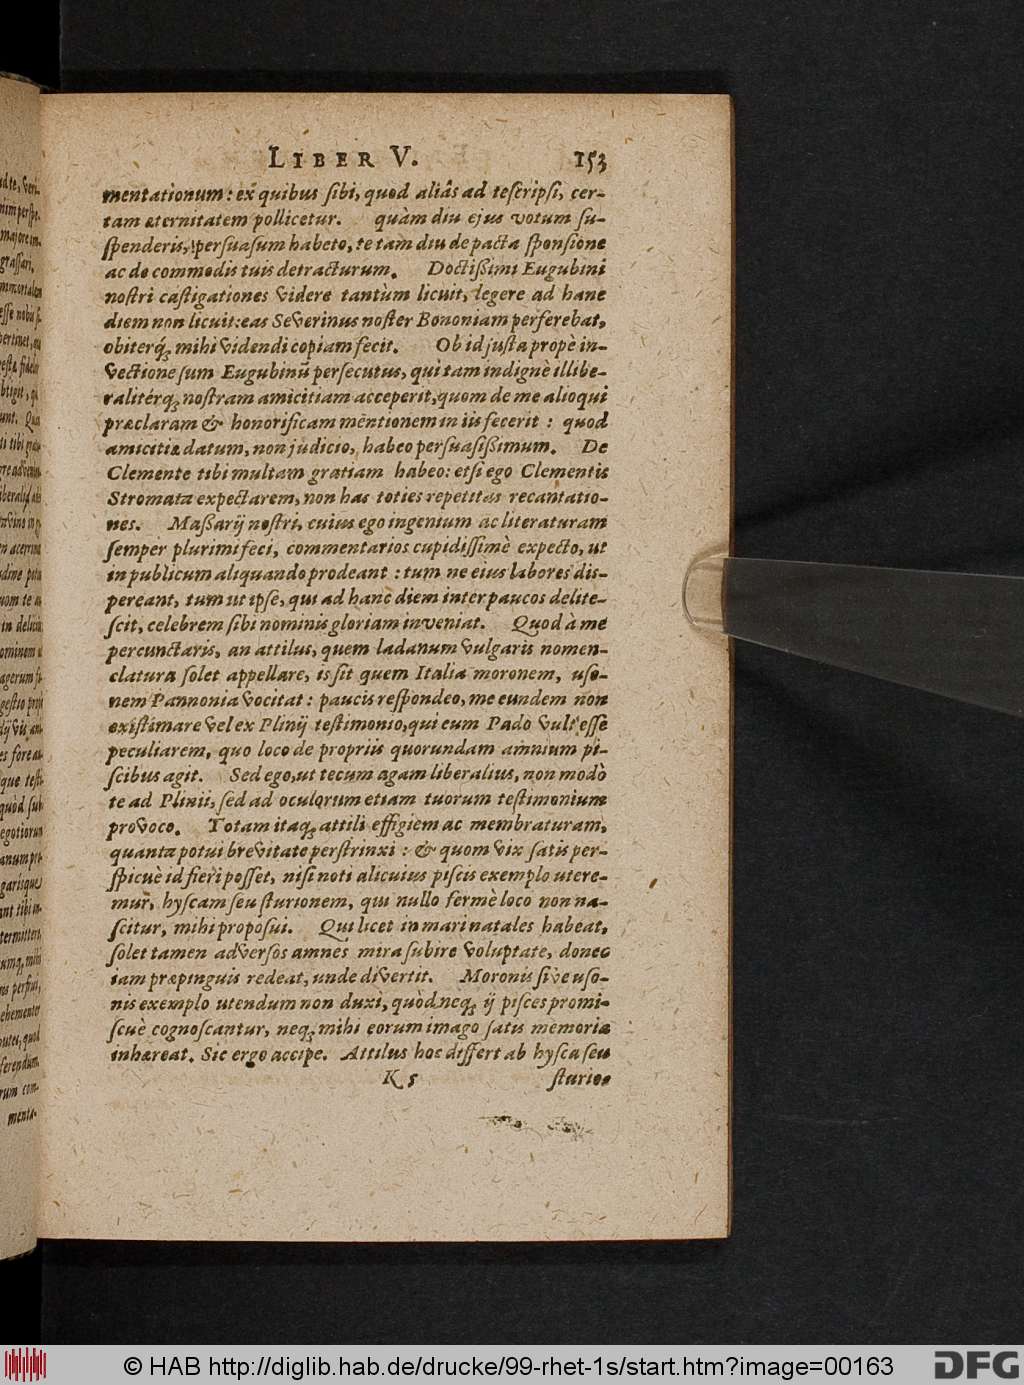 LIBER V. 153
mentationum: ex quibus sibi, quod aliâs ad te scripsi, cer-
tam æternitatem pollicetur. quàm diu ejus votum su-
spenderis, persuasum habeto, te tam diu de pacta sponsione
ac de commodis tuis detracturum. Doctißimi Eugubini
nostri castigationes videre tantùm licuit, legere ad hanc
diem non licuit: eas Severinus noster Bononiam perferebat,
obiterq́; mihi videndi copiam fecit. Ob id justa propè in-
vectione sum Eugubinū persecutus, qui tam indignè illibe-
ralitérq; nostram amicitiam acceperit, quom de me alioqui
præclaram & honorificam mentionem in iis fecerit : quod
amicitiæ datum, non judicio, habeo persuasißimum. De
Clemente tibi multam gratiam habeo: etsi ego Clementis
Stromata expectarem, non has toties repetitas recantatio-
nes. Maßarij nostri, cuius ego ingenium ac literaturam
semper plurimi feci, commentarios cupidissimè expecto, ut
in publicum aliquando prodeant : tum ne eius labores dis-
pereant, tum ut ipse, qui ad hanc diem inter paucos delite-
scit, celebrem sibi nominis gloriam inveniat. Quod à me
percunctaris, an attilus, quem ladanum vulgaris nomen-
clatura solet appellare, is sit quem Italia moronem, uso-
nem Pannonia vocitat : paucis respondeo, me eundem non
existimare vel ex Plinij testimonio, qui eum Pado vult esse
peculiarem, quo loco de propriis quorundam amnium pi-
scibus agit. Sed ego, ut tecum agam liberalius, non modò
te ad Plinii, sed ad oculorum etiam tuorum testimonium
provoco. Totam itaq; attili effigiem ac membraturam,
quanta potui brevitate perstrinxi : & quom vix satis per-
spicuè id fieri posset, nisi noti alicuius piscis exemplo utere-
mur, hyscam seu sturionem, qui nullo fermè loco non na-
scitur, mihi proposui. Qui licet in mari natales habeat,
solet tamen adversos amnes mira subire voluptate, donec
iam præpinguis redeat, unde divertit. Moronis sive uso-
nis exemplo utendum non duxi, quòd neq; ij pisces promi-
scuè cognoscantur, neq; mihi eorum imago satis memoriæ
inhæreat. Sic ergo accipe. Attilus hoc differt ab hysca seu
K 5 sturio-
© HAB http://diglib.hab.de/drucke/99-rhet-1s/start.htm?image=00163 DFG